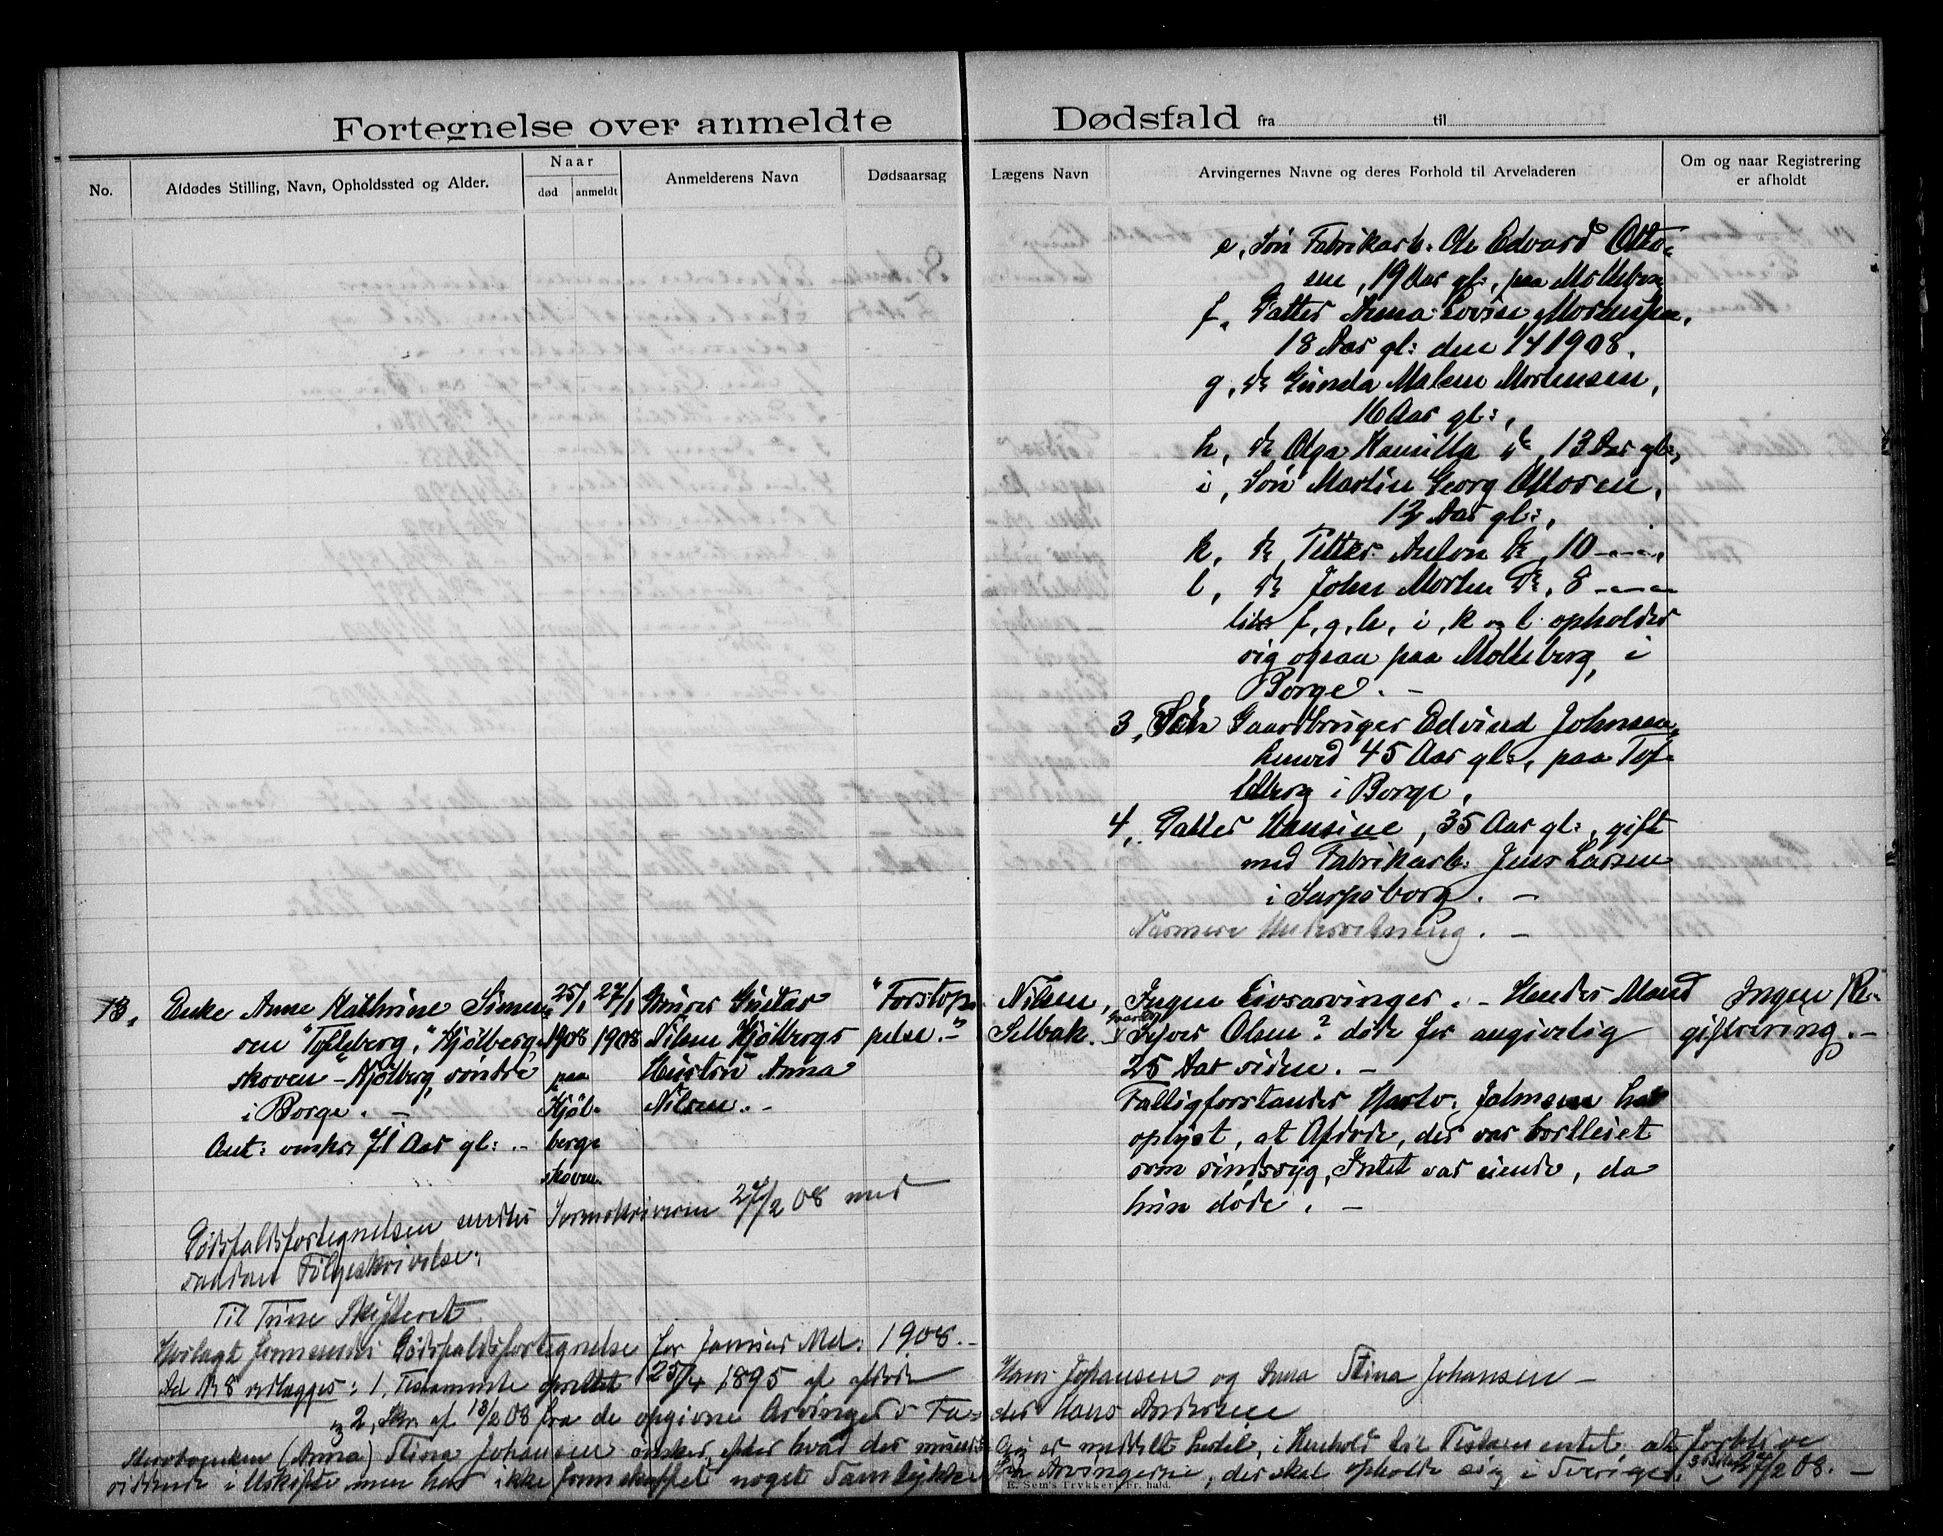 Fortegnelse over anmeldte Dødsfald fra til
No.
Afdødes Stilling, Navn, Opholdssted og Alder.
Naar
død
anmeldt
Anmelderens Navn
Dødsaarsag
Lægens Navn
Arvingernes Navne og deres Forhold til Arveladeren
Om og naar Registrering
er afholdt
e, Søn Fabrikarb: Ole Edvard Otto-
sen, 19 Aar gl:, paa Molteberg
f, Datter Anna Lovise Mortensen,
18 Aar gl: den 1908.
g, do Gunda Malene Mortensen,
16 Aar gl:,
h, do Olga Kamilla do, 13 Aar gl:,
i, Søn Martin Georg Ottosen,
12 Aar gl:,
k, do Petter Anton do, 10 -"-"-,
l, do John Morten do, 8 -"-"-
f, g, h, i, k og l opholder
sig ogsaa paa Molteberg, i
Borge. -
3, Søn Gaardbruger Edvind Johnsen,
henved 45 Aar gl:, paa Tof-
teberg i Borge,
4, Datter Hansine, 35 Aar gl:, gift
med Fabrikarb: Jens Larsen
i Sarpsborg. -
Nærmere Underretning. -
13,
Enke Anne Kathrine Simen-
sen "Tofteberg", Kjølbergs-
skoven - Kjølberg søndre
i Borge. -
Ant: omkr 71 Aar gl: . -
25/1
1908
paa
Kjøl-
bergs-
skoven
27/1
1908
Gustav
Nilsen Kjølbergs
Hustru Anna
Nilsen. -
"Forstop-
pelse. -"
Nilsen,
Selbak. -
Ingen Livsarvinger. - Hendes Mand
Syver Olsen? døde for angivelig
25 Aar siden. -
Fattigforstander Martv. Johnsen har
oplyst, at Afdøde, der var bortleiet
som sindssyg, Intet var eiende, da
hun døde. -
Ingen Re-
gistrering. -
Dødsfaldsfortegnelsen sendes Sorenskriveren 27/2 08 med
saadan Følgeskrivelse:
Til Tune Skifteret.
Vedlagt fremsendes Dødsfaldsfortegnelse for Januar Md: 1908. -
Ad No 8 vedlægges: 1, Testamente oprettet 25/4 1895 af afdøde Hans Johansen og Anna Stina Johansen -
og 2, Skr. af 18/2 08 fra de opgivne Arvingers Fa- der Hans Andersen
(Anna) Stina Johansen ønsker, efter hvad der mundt- lig er meddelt Lensm., i Henhold til Testamentet at forblive
siddende i Uskifte men har ikke fremskaffet noget Samtykke fra Arvingerne, der skal opholde sig i Sverige. 27/2 08. -
E. Sem's Trykkeri, Fr.hald.